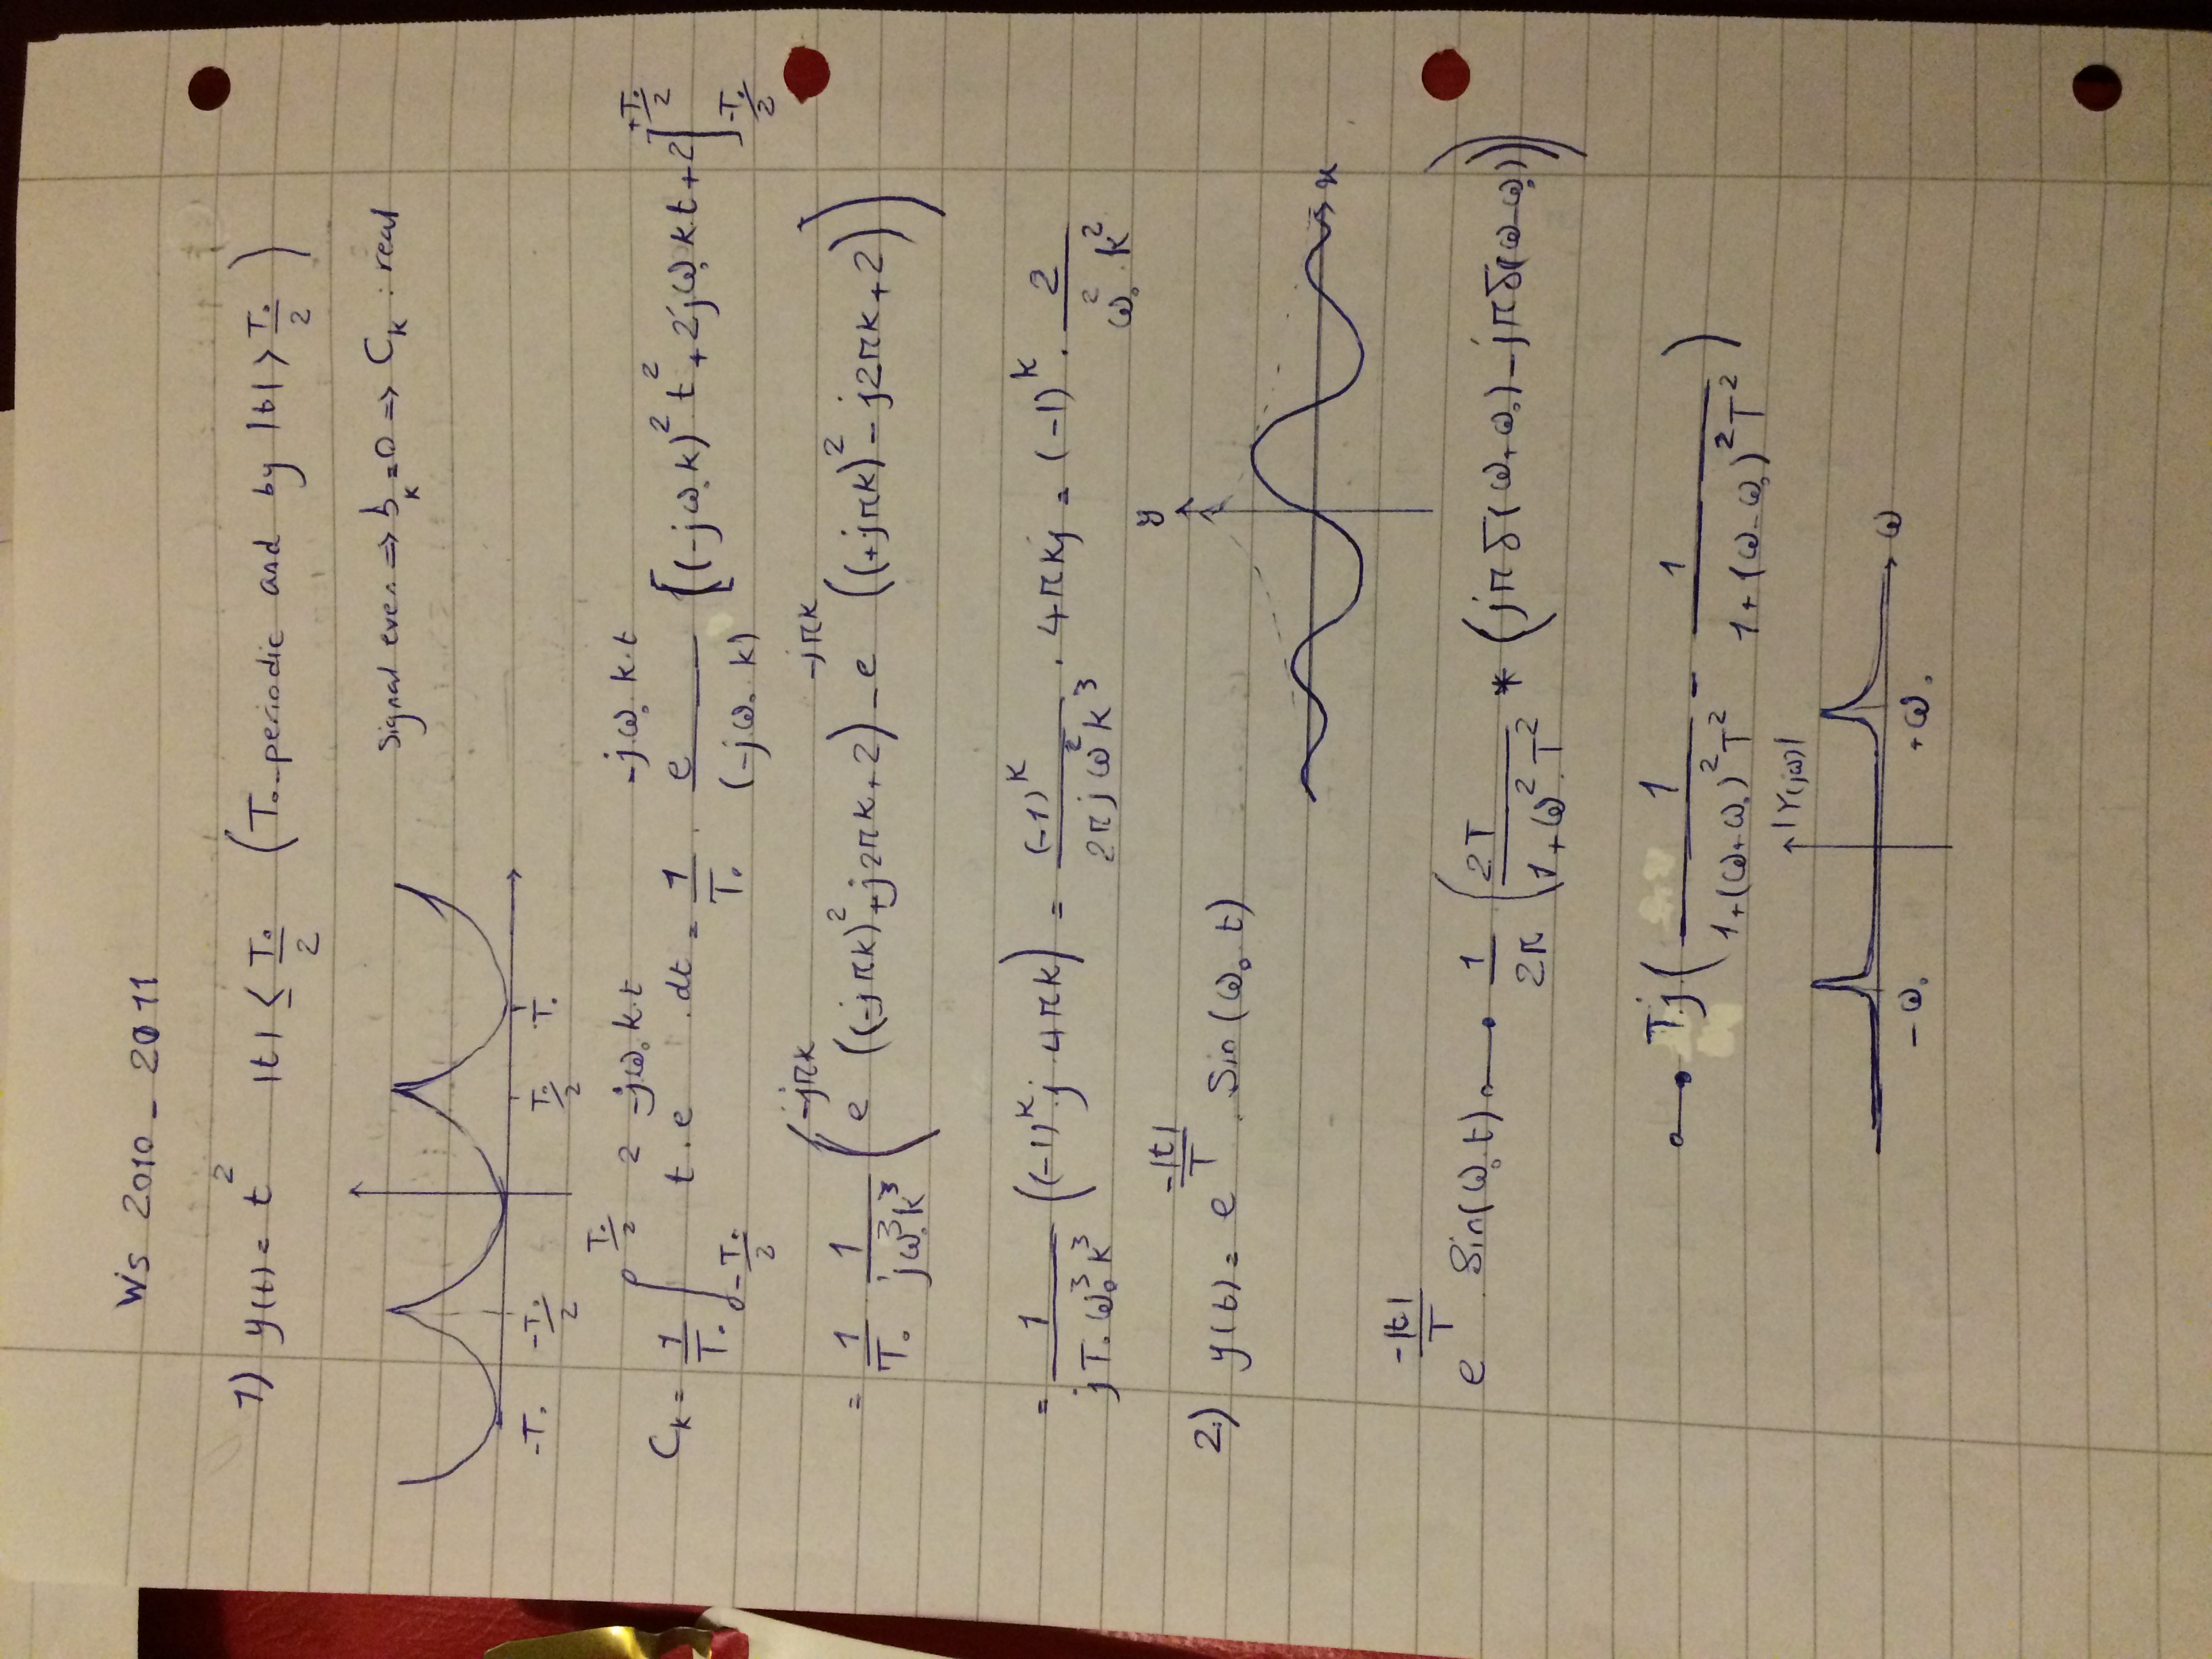 WS 2010 - 2011
1) y(t) = t² |t| ≤ T₀/2 (T₀-periodic and by |t| > T₀/2)
Signal even ⇒ b_k = 0 ⇒ C_k : real
-T₀ -T₀/2 T₀/2 T₀
C_k = 1/T₀ ∫_{-T₀/2}^{T₀/2} t² · e^{-jω₀k·t} · dt = 1/T₀ · e^{-jω₀k·t}/(-jω₀k) [(-jω₀k)² t² + 2jω₀kt + 2]_{-T₀/2}^{+T₀/2}
= 1/T₀ · 1/(jω₀³k³) (e^{-jπk} ((-jπk)² + j2πk + 2) - e^{-jπk} ((+jπk)² - j2πk + 2))
= 1/(jT₀ω₀³k³) ((-1)^k · j · 4πk) = (-1)^k/(2πjω²k³) · 4πkj = (-1)^k · 2/(ω₀² · k²)
y
2.) y(t) = e^{-|t|/T} · Sin(ω₀ t)
x
e^{-|t|/T} · Sin(ω₀t) ○—● 1/2π (2T/(1+ω²·T²) * (jπδ(ω+ω₀) - jπδ(ω-ω₀)))
○—● T·j (1/(1+(ω+ω₀)²T²) - 1/(1+(ω-ω₀)²T²))
|Y(jω)|
ω
-ω₀ +ω₀